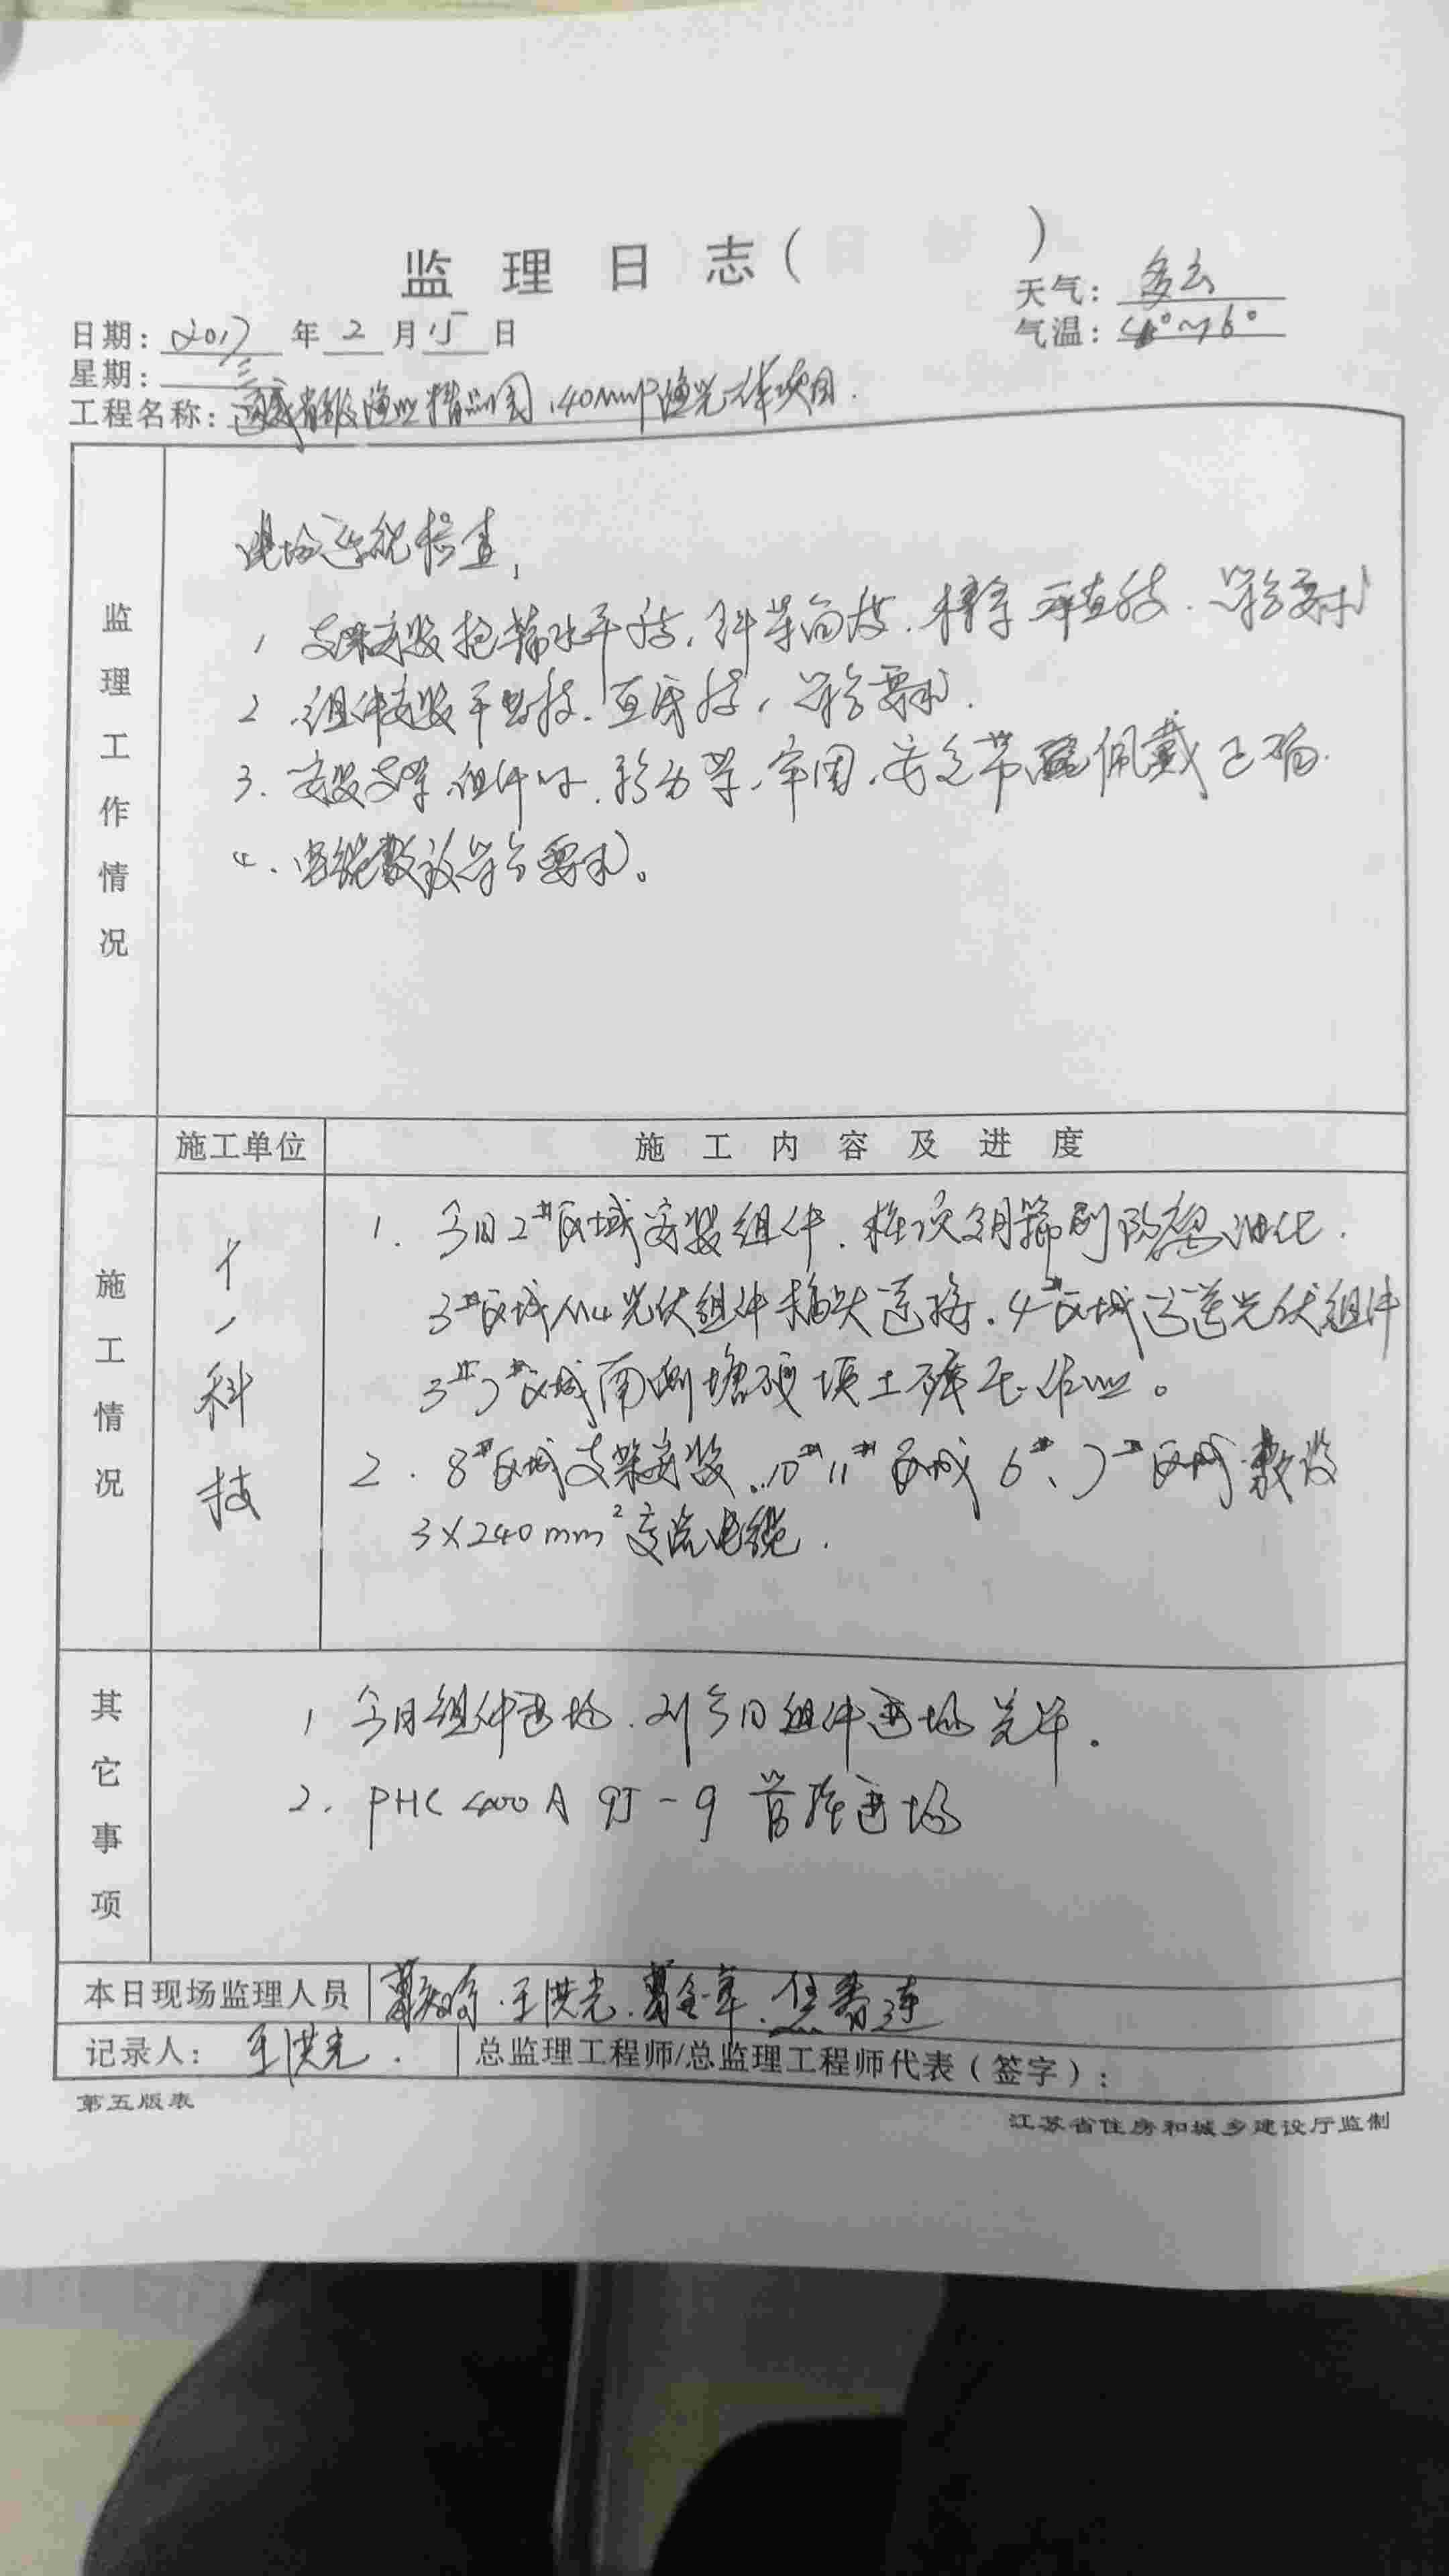 监理日志（ ）
天气：多云
日期：2017年2月15日
气温：~6°
星期：三
工程名称：通威省级渔业精品园，40MWP渔光一体项目.
监理工作情况
现场巡视检查，
1 支架安装抱箍水平度，斜梁角度. 檩条平直度. 符合要求
2. 组件安装平整度. 互度，符合要求.
3. 安装支架，组件时，牢固，安全带佩戴正确.
4. 电缆敷设符合要求。
施工单位 施工内容及进度
施工情况
十一科技
1. 今日2#区域安装组件. 桩顶钢箍刷防腐油化.
3#区域M4光伏组件插头连接. 4#区域运送光伏组件
3# 7#区域南侧塘埂填土作业。
2. 8#区域支架安装. 10# 11#区域 6#、7#区域敷设
3×240mm²交流电缆.
其它事项
1 今日组件进场. 到今日组件进场完毕.
2. PHC 400 A 95-9 管桩进场
本日现场监理人员 王洪光. 焦春连
记录人：王洪光. 总监理工程师/总监理工程师代表（签字）：
第五版表
江苏省住房和城乡建设厅监制